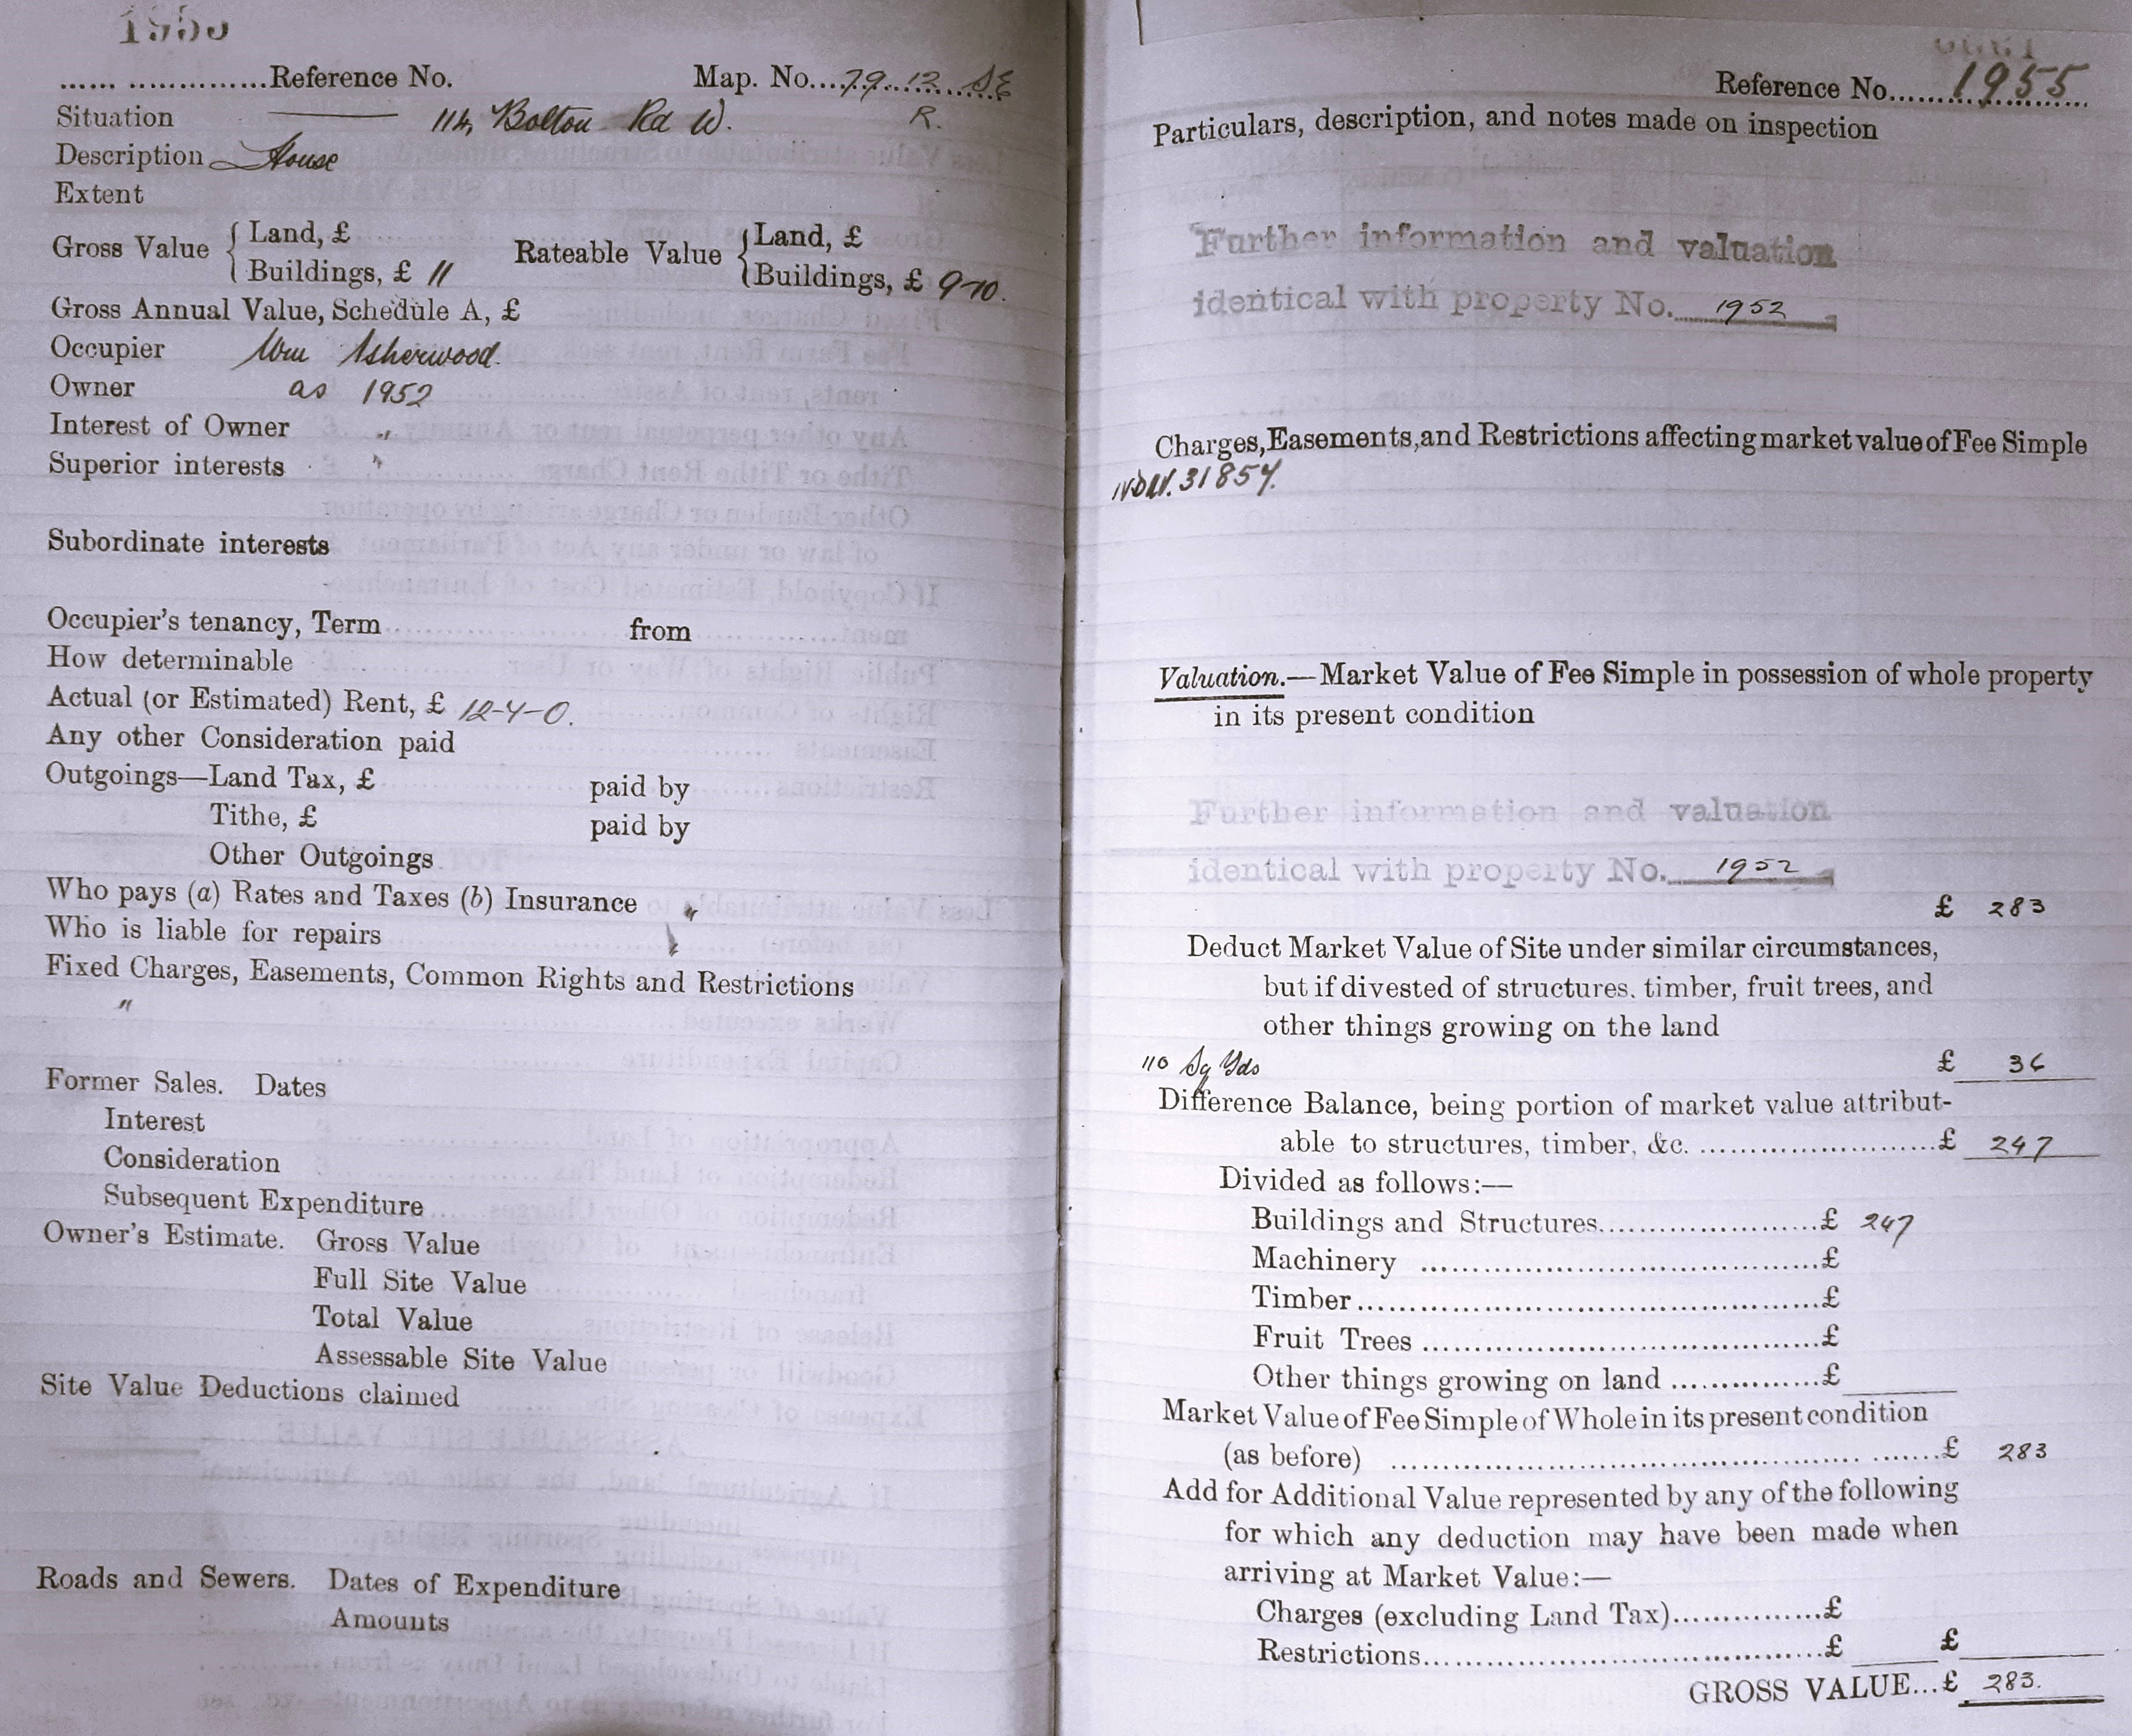 Reference No. Map. No. 79.12 SE
Situation 114, Bolton Rd W. R.
Description House
Extent
Gross Value { Land, £ Rateable Value { Land, £
Buildings, £ 11 Buildings, £ 9-10.
Gross Annual Value, Schedule A, £
Occupier Wm Isherwood.
Owner as 1952
Interest of Owner "
Superior interests "
Subordinate interests
Occupier's tenancy, Term from
How determinable
Actual (or Estimated) Rent, £ 12-4-0.
Any other Consideration paid
Outgoings—Land Tax, £ paid by
Tithe, £ paid by
Other Outgoings
Who pays (a) Rates and Taxes (b) Insurance "
Who is liable for repairs
Fixed Charges, Easements, Common Rights and Restrictions
"
Former Sales. Dates
Interest
Consideration
Subsequent Expenditure
Owner's Estimate. Gross Value
Full Site Value
Total Value
Assessable Site Value
Site Value Deductions claimed
Roads and Sewers. Dates of Expenditure
Amounts
Reference No. 1955
Particulars, description, and notes made on inspection
Further information and valuation
identical with property No. 1952
Charges, Easements, and Restrictions affecting market value of Fee Simple
31854.
Valuation.—Market Value of Fee Simple in possession of whole property
in its present condition
Further information and valuation
identical with property No. 1952
£ 283
Deduct Market Value of Site under similar circumstances,
but if divested of structures. timber, fruit trees, and
other things growing on the land
110 Sq Yds £ 36
Difference Balance, being portion of market value attribut-
able to structures, timber, &c. £ 247
Divided as follows:—
Buildings and Structures £ 247
Machinery £
Timber £
Fruit Trees £
Other things growing on land £
Market Value of Fee Simple of Whole in its present condition
(as before) £ 283
Add for Additional Value represented by any of the following
for which any deduction may have been made when
arriving at Market Value:—
Charges (excluding Land Tax) £
Restrictions £ £
GROSS VALUE...£ 283.